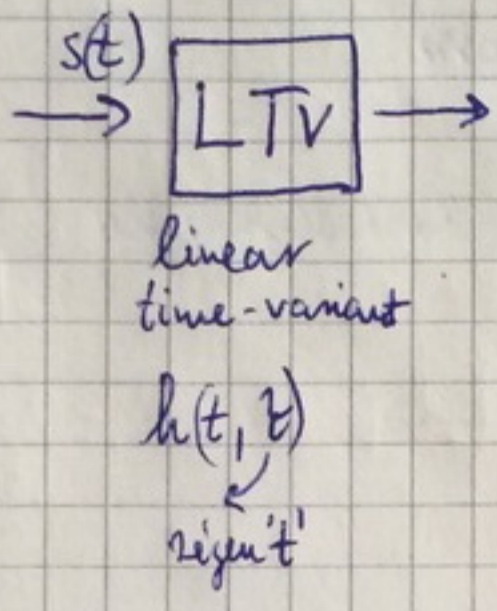 s(t)
LTV
linear
time-variant
h(t, τ)
régen 't'